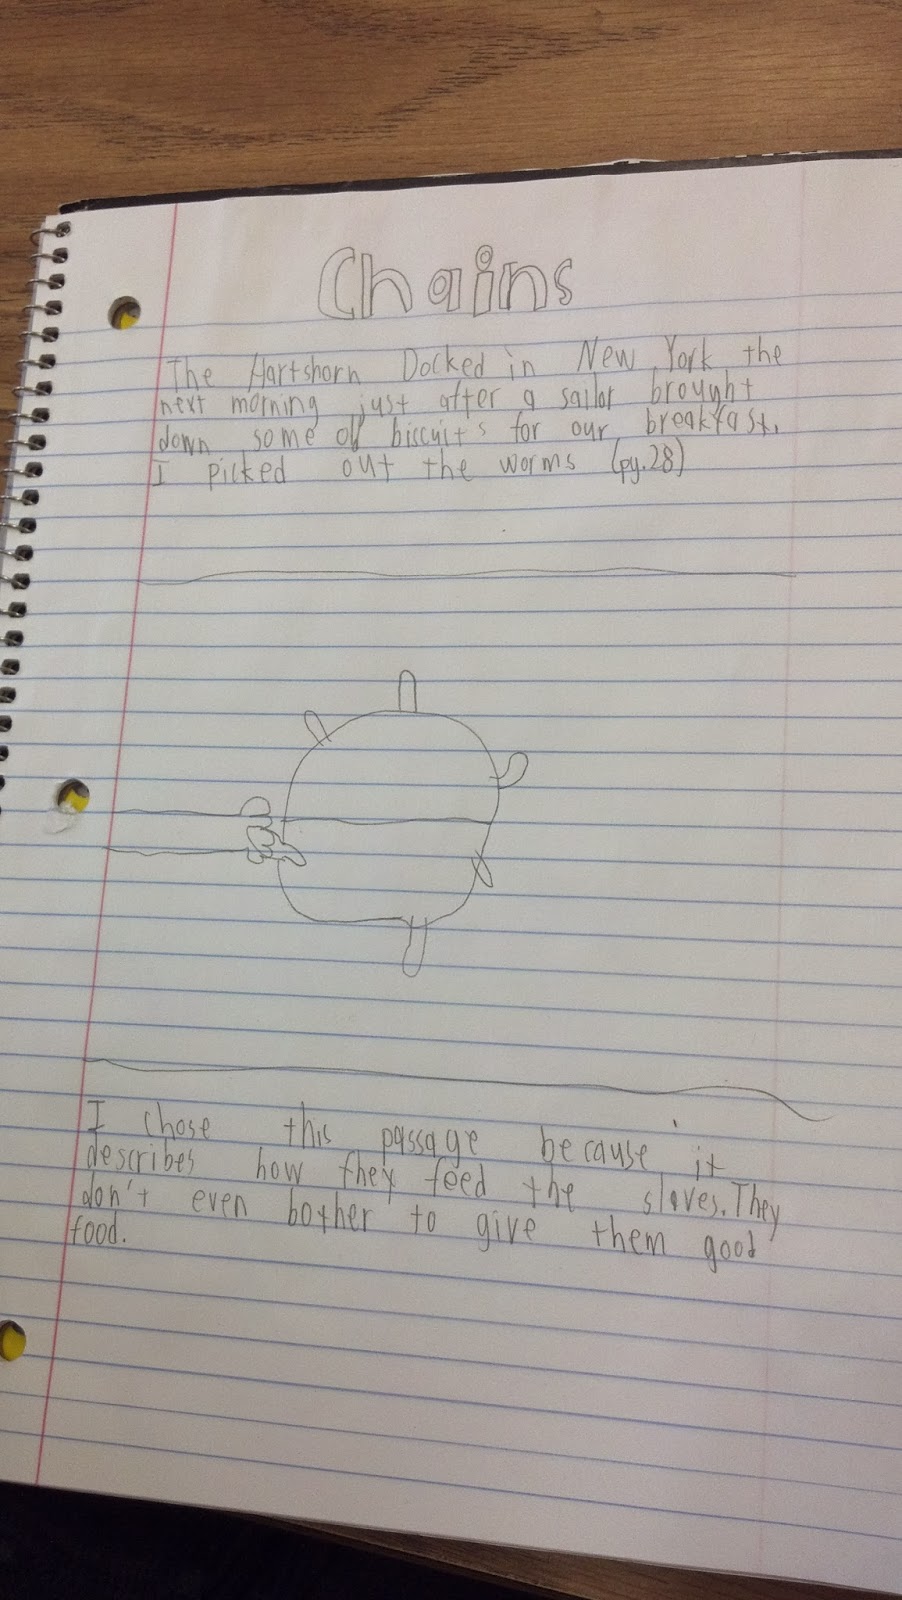 Chains
The Hartshorn Docked in New York the
next morning just after a sailor brought
down some old biscuits for our breakfast.
I picked out the worms (pg.28)
I chose this passage because it
describes how they feed the slaves. They
don't even bother to give them good
food.